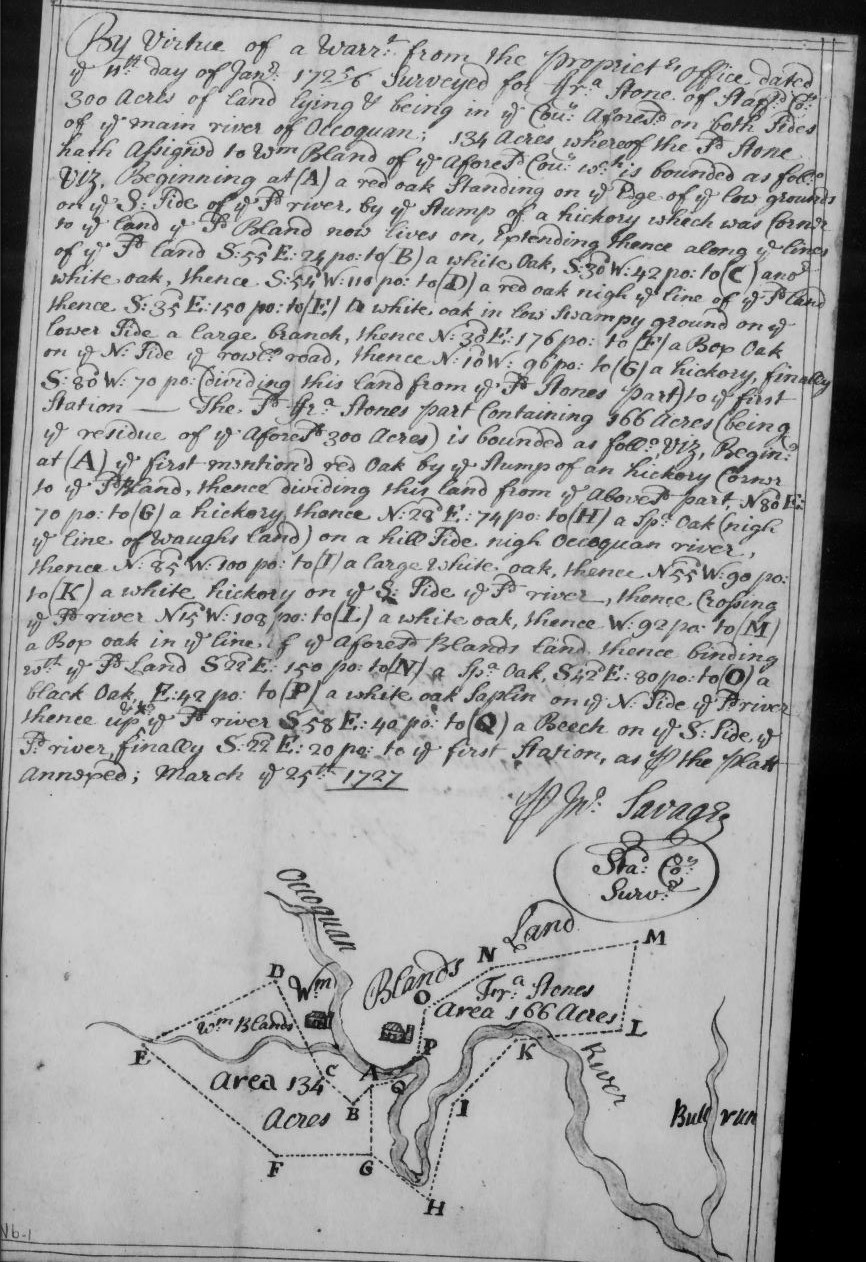 By Virtue of a Warrt. from the Propriets. Office dated
ye 11th day of Janry. 1725/6 Surveyed for Fra. Stone of Stafd. Co:
300 Acres of land lying & being in ye Cou: Aforesd. on both Sides
of ye main river of Occoquan; 134 Acres whereof the Sd. Stone
hath Assign'd to Wm Bland of ye Aforesd. Cou: wch. is bounded as foll:
Viz, Beginning at (A) a red oak Standing on ye Edge of ye low grounds
on ye S: Side of ye Sd. river, by ye Stump of a hickory which was Corner
to ye land ye Sd. Bland now lives on, Extending thence along ye lines
of ye Sd. land S:55 E: 24 po: to (B) a white Oak, S:30 W: 42 po: to (C) anor.
white oak, thence S:54 W: 110 po: to (D) a red oak nigh ye line of ye Sd. land
thence S:35 E: 150 po: to (E) a white oak in low Swampy ground on ye
lower Side a large branch, thence N:30 E: 176 po: to (F) a Box Oak
on ye N: Side ye road, thence N:10 W: 96 po: to (G) a hickory, finally
S:80 W: 70 po: (dividing this land from ye Sd. Stones part) to ye first
Station — The Sd. Fra. Stones part Containing 166 Acres (being
ye residue of ye Aforesd. 300 Acres) is bounded as foll: Viz, Begin:
at (A) ye first mention'd red Oak by ye Stump of an hickory Corner
to ye Sd. Bland, thence dividing this land from ye Abovesd. part, N80 E:
70 po: to (G) a hickory, thence N:28 E: 74 po: to (H) a Sp: Oak (nigh
ye line of Waughs land) on a hill Side nigh Occoquan river,
thence N:85 W: 100 po: to (I) a large white oak, thence N55 W: 90 po:
to (K) a white hickory on ye S: Side ye Sd. river, thence Crossing
ye Sd. river N15 W: 108 po: to (L) a white oak, thence W: 92 po: to (M)
a Box oak in ye line of ye Aforesd. Blands land thence binding
wth. ye Sd. Land S22 E: 150 po: to (N) a Spa. Oak, S42 E: 80 po: to (O) a
black Oak, E: 42 po: to (P) a white oak Saplin on ye N: Side ye Sd. river
thence up ye Sd. river S58 E: 40 po: to (Q) a Beech on ye S: Side ye
Sd. river, finally S:22 E: 20 po: to ye first Station, as P the Platt
Annexed; March ye 25th. 1727
P Jno. Savage
Sta: Co:
Surv:
Occoquan
Land
M
N
D
Wm
Blands
O
Fra. Stones
Area 166 Acres
Wm Blands
L
E
P
K
River
C
A
Q
Area 134
B
I
Acres
Bull run
F
G
H
Nb-1